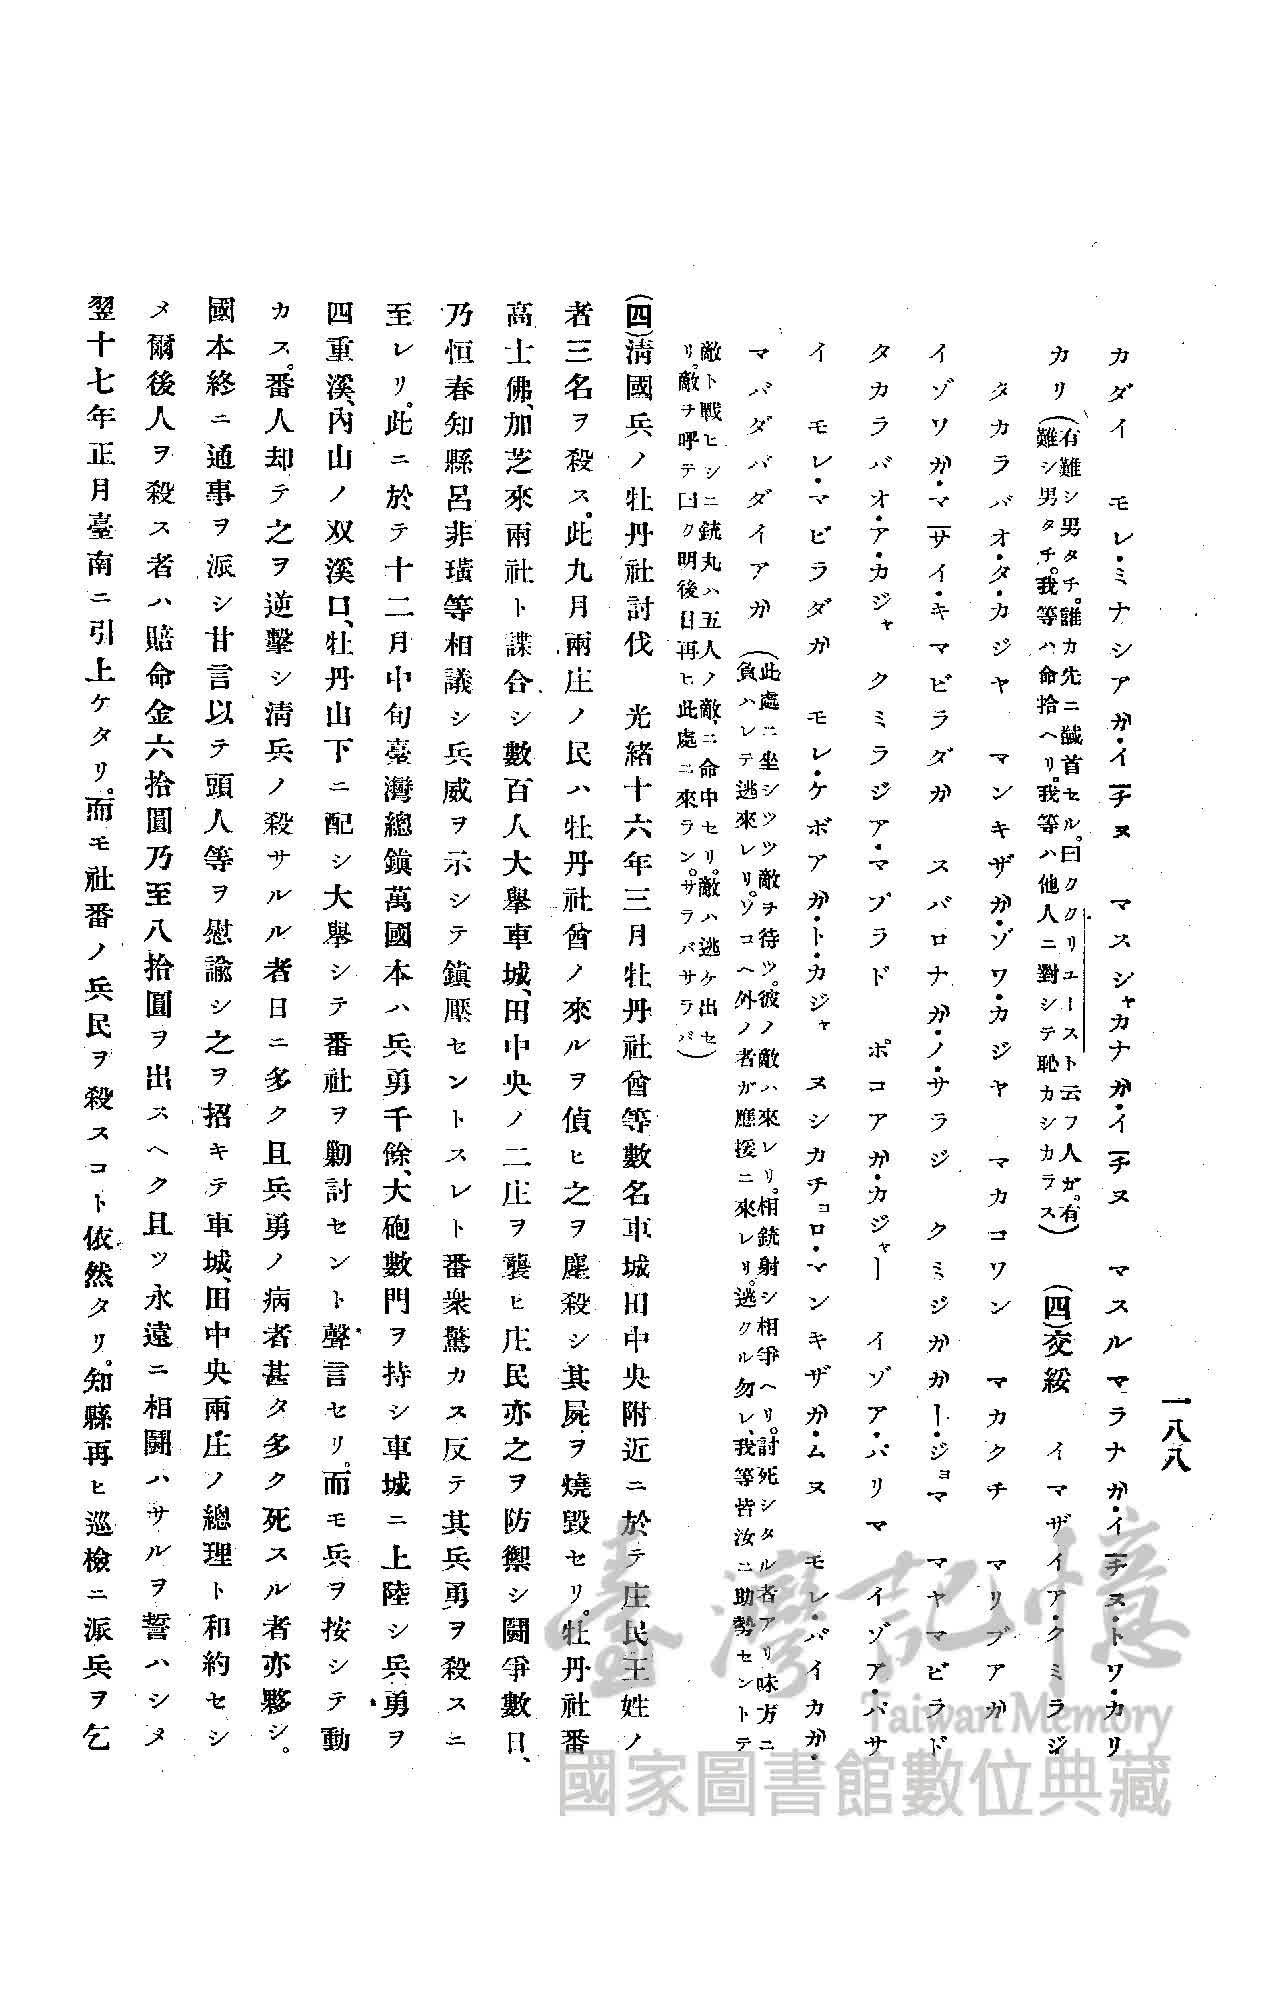 一八八
カダイ　モレ・ミナシアガ・イチヌ　マスシャカナガ・イチヌ　マスルマラナガ・イチヌ・トワ・カリ
カリ（有難シ男タチ。誰カ先ニ馘首セル。曰ククリエースト云フ人ガ。有難シ男タチ。我等ハ命拾ヘリ。我等ハ他人ニ對シテ恥カシカラス）　（四）交綏　イマザイア・クミラジ
タカラバオ・タ・カジヤ　マンキザガ・ゾワ・カジヤ　マカコワン　マカクチ　マリブアガ
イゾワガ・マサイ・キマビラダガ　スバロナガ・ノ・サラジ　クミジガガー・ジョマ　マヤマビラド
タカラバオ・ア・カジャ　クミラジア・マプラド　ポコアガ・カジャー　イゾア・バリマ　イゾア・バサ
イ　モレ・マビラダガ　モレ・ケボアガ・ト・カジャ　ヌシカチョロ・マンキザガ・ムヌ　モレ・パイカガ・
マバダバダイアガ（此處ニ坐シツツ敵ヲ待ツ。彼ノ敵ハ來レリ。相銃射シ相爭ヘリ。討死シタル者アリ味方ニ負ハレテ逃來レリ。ソコヘ外ノ者ガ應援ニ來レリ。逃クル勿レ、我等皆汝ニ助勢セントテ
敵ト戰ヒシニ銃丸ハ五人ノ敵ニ命中セリ。敵ハ逃ケ出セリ。敵ヲ呼テ曰ク明後日再ヒ此處ニ來ラン。サラバサラバ）
（四）淸國兵ノ牡丹社討伐　光緖十六年三月牡丹社酋等數名車城田中央附近ニ於テ庄民王姓ノ
者三名ヲ殺ス。此九月兩庄ノ民ハ牡丹社酋ノ來ルヲ偵ヒ之ヲ鏖殺シ其屍ヲ燒毀セリ。牡丹社番
高士佛、加芝來兩社ト諜合シ數百人大擧車城、田中央ノ二庄ヲ襲ヒ庄民亦之ヲ防禦シ鬪爭數日、
乃恒春知縣呂非璜等相議シ兵威ヲ示シテ鎭壓セントスレト番衆驚カス反テ其兵勇ヲ殺スニ
至レリ。此ニ於テ十二月中旬臺灣總鎭萬國本ハ兵勇千餘、大砲數門ヲ持シ車城ニ上陸シ兵勇ヲ
四重溪、內山ノ双溪口、牡丹山下ニ配シ大擧シテ番社ヲ勦討セント聲言セリ。而モ兵ヲ按シテ動
カス。番人却テ之ヲ逆擊シ淸兵ノ殺サルル者日ニ多ク且兵勇ノ病者甚タ多ク死スル者亦夥シ。
國本終ニ通事ヲ派シ甘言以テ頭人等ヲ慰諭シ之ヲ招キテ車城、田中央兩庄ノ總理ト和約セシ
メ爾後人ヲ殺ス者ハ賠命金六拾圓乃至八拾圓ヲ出スヘク且ツ永遠ニ相鬪ハサルヲ誓ハシメ
翌十七年正月臺南ニ引上ケタリ。而モ社番ノ兵民ヲ殺スコト依然タリ。知縣再ヒ巡檢ニ派兵ヲ乞
臺灣記憶
Taiwan Memory
國家圖書館數位典藏